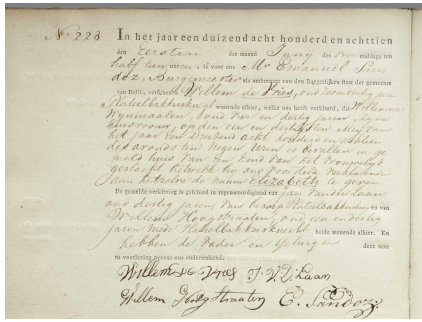 No. 223
In het jaar een duizend acht honderd en achttien
den eersten der maand Junij des voor middags ten
half tien uren, is voor ons Mr. Emanuel San
doz, Burgemeester als ambtenaar van den Burgerlijken staat der gemeente
van Delft, verscheenen Willem de Vries, oud
Plateelbakkersknegt wonende alhier, welke ons heeft verklaard, dat Willemina
Wijnmaalen, oud vier en dertig jaren, zijne
huisvrouw, op den een en dertigsten Mey van
het jaar een Duizend acht honderd en achttien
des avonds ten negen Uren is bevallen in ge
meld huis van een kind van het Vrouwelyk
geslacht hetwelk hy ons voorstelde verklarende
aan hetzelve de naam Elizabeth te geven
De gemelde verklaring is geschied in tegenwoordigheid van Jan Vander Laan
oud dertig jaren, van beroep Plateelbakker en van
Willem Hoogstraaten, oud een en dertig
jaren mede Plateelbakkersknecht beide wonende alhier. En
hebben de Vader en Getuigen deze acte
na voorlezing nevens ons onderteekend.
Willem de Vries J. V. D. Laan
Willem Hoogstraaten E. Sandoz